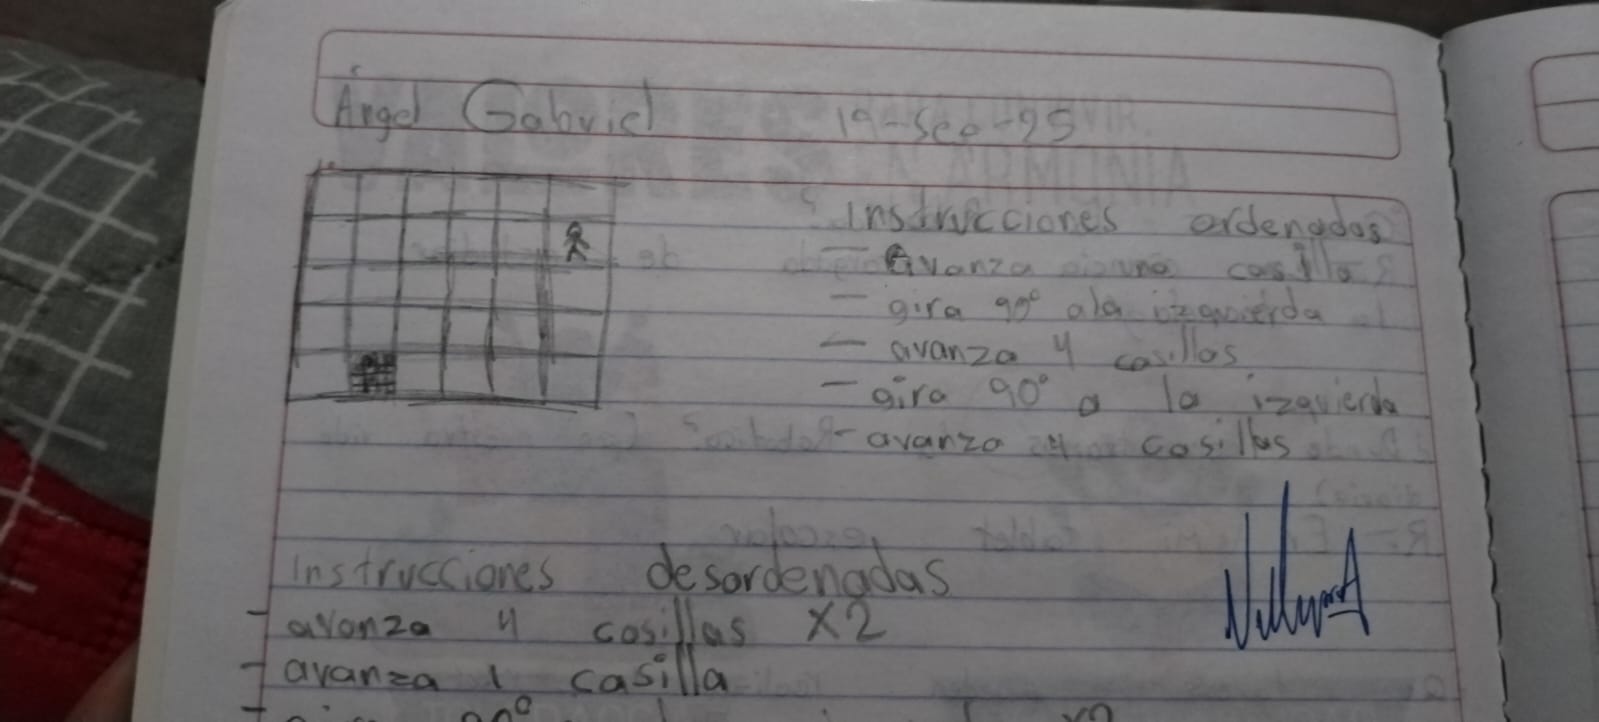 Ángel Gabriel 19-Sep-25
Instrucciones ordenadas
- Avanza una casilla
- gira 90° ala izquierda
- avanza 4 casillas
- gira 90° a la izquierda
- avanza 4 casillas
Instrucciones desordenadas
- avanza 4 casillas X2
- avanza 1 casilla
- gira 90° x2